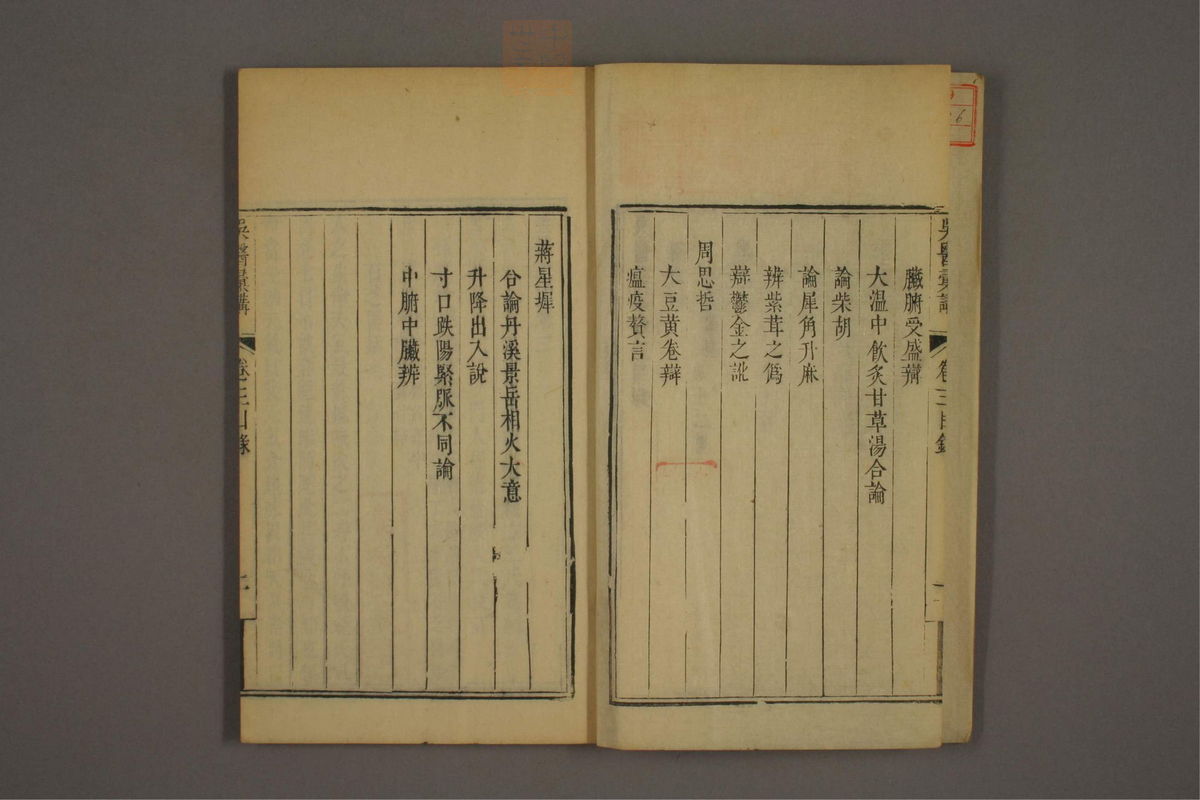 吳醫彙講
卷三目錄
臟腑受盛辯
大溫中飲炙甘草湯合論
論柴胡
論犀角升麻
辨紫茸之僞
辯鬱金之訛
周思哲
大豆黄卷辯
瘟疫贅言
蔣星墀
合論丹溪景岳相火大意
升降出入說
寸口趺陽緊脈不同論
中腑中臟辨
吳醫彙講
卷三目錄
二